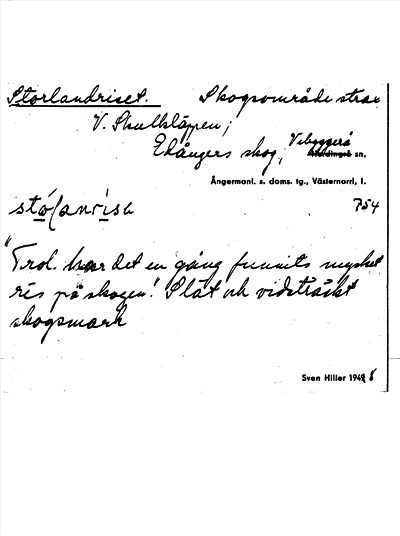 Storlandriset. Skogsområde strax
V. Skulkläppen;
Edångers skog, Vibyggerå sn,
Ångermanl. s. doms. tg., Västernorrl. l.
754
"Trol. har det en gång funnits mycket
ris på skogen." Slät och vidsträckt
skogsmark
Sven Hiller 1948